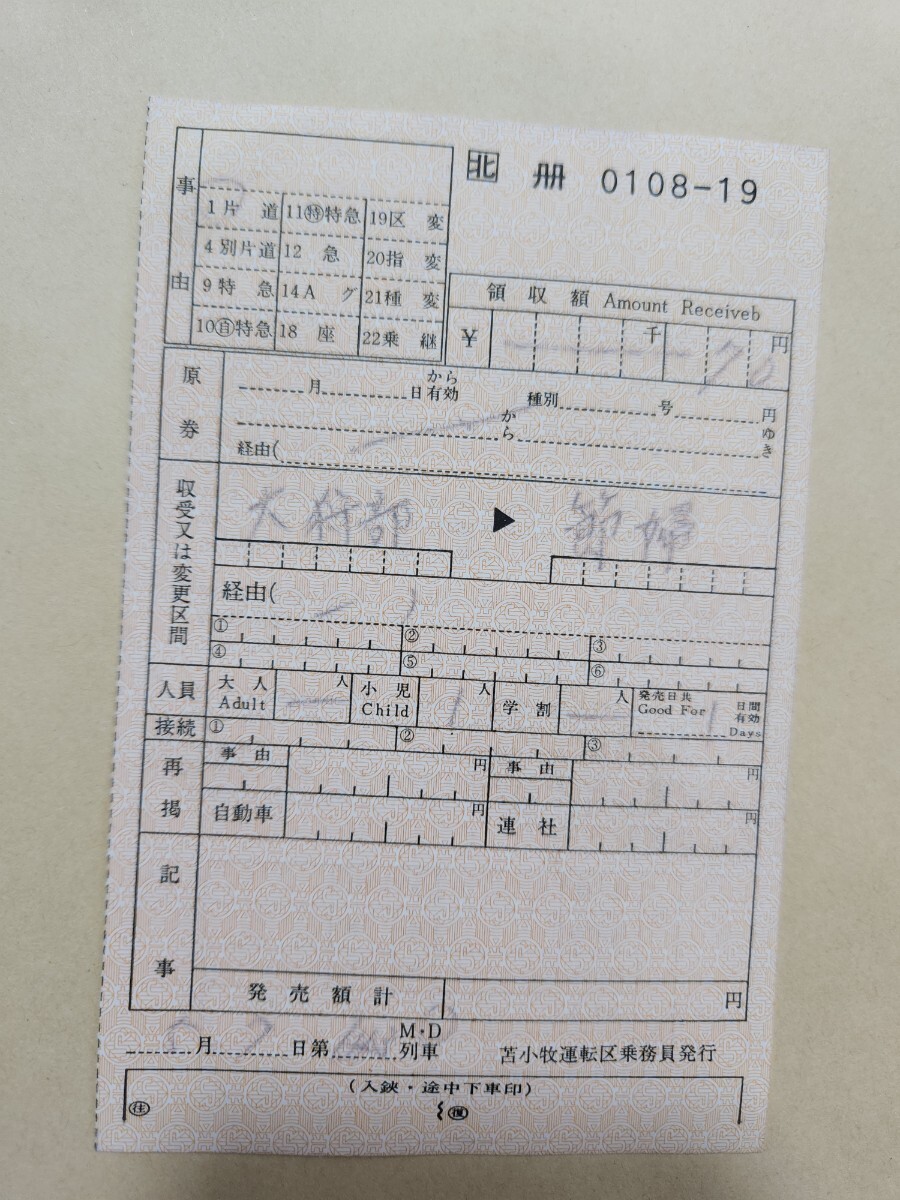 北 冊 0108-19
事由
1 片道 11㊕特急 19区変
4 別片道 12 急 20指変
9 特急 14Aグ 21種変
10㊐特急 18 座 22乗継
領収額 Amount Receiveb
¥ 千 70 円
原券
月 日 から有効 種別 号 円
から ゆき
経由(
収受又は変更区間
大幹部 ▶ 節婦
経由( )
① ② ③
④ ⑤ ⑥
人員 大人 Adult 人 小児 Child 1 人 学割 人 発売日共 Good For 1 日間有効 Days
接続 ① ② ③
再掲 事由 円 事由 円
自動車 円 連社 円
記事
発売額計 円
月 7 日第 M・D列車 苫小牧運転区乗務員発行
(入鋏・途中下車印)
㊟ ㊝